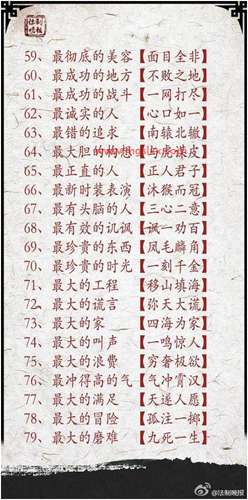 59、最彻底的美容【面目全非】
60、最成功的地方【不败之地】
61、最成功的战斗【一网打尽】
62、最诚实的人【心口如一】
63、最错的追求【南辕北辙】
64、最大胆的【与虎谋皮】
65、最正直的人【正人君子】
66、最新时装表演【沐猴而冠】
67、最有头脑的人【三心二意】
68、最有效的讥讽【讽一劝百】
69、最珍贵的东西【凤毛麟角】
70、最珍贵的时光【一刻千金】
71、最大的工程【移山填海】
72、最大的谎言【弥天大谎】
73、最大的家【四海为家】
74、最大的叫声【一鸣惊人】
75、最大的浪费【穷奢极欲】
76、最冲得高的气【气冲霄汉】
77、最大的满足【天遂人愿】
78、最大的冒险【孤注一掷】
79、最大的磨难【九死一生】
@法制晚报